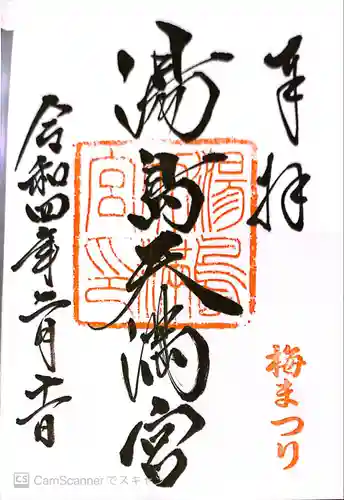 奉拝
湯島天満宮
湯島天満宮印
梅まつり
令和四年二月十一日
CS CamScannerでスキャン